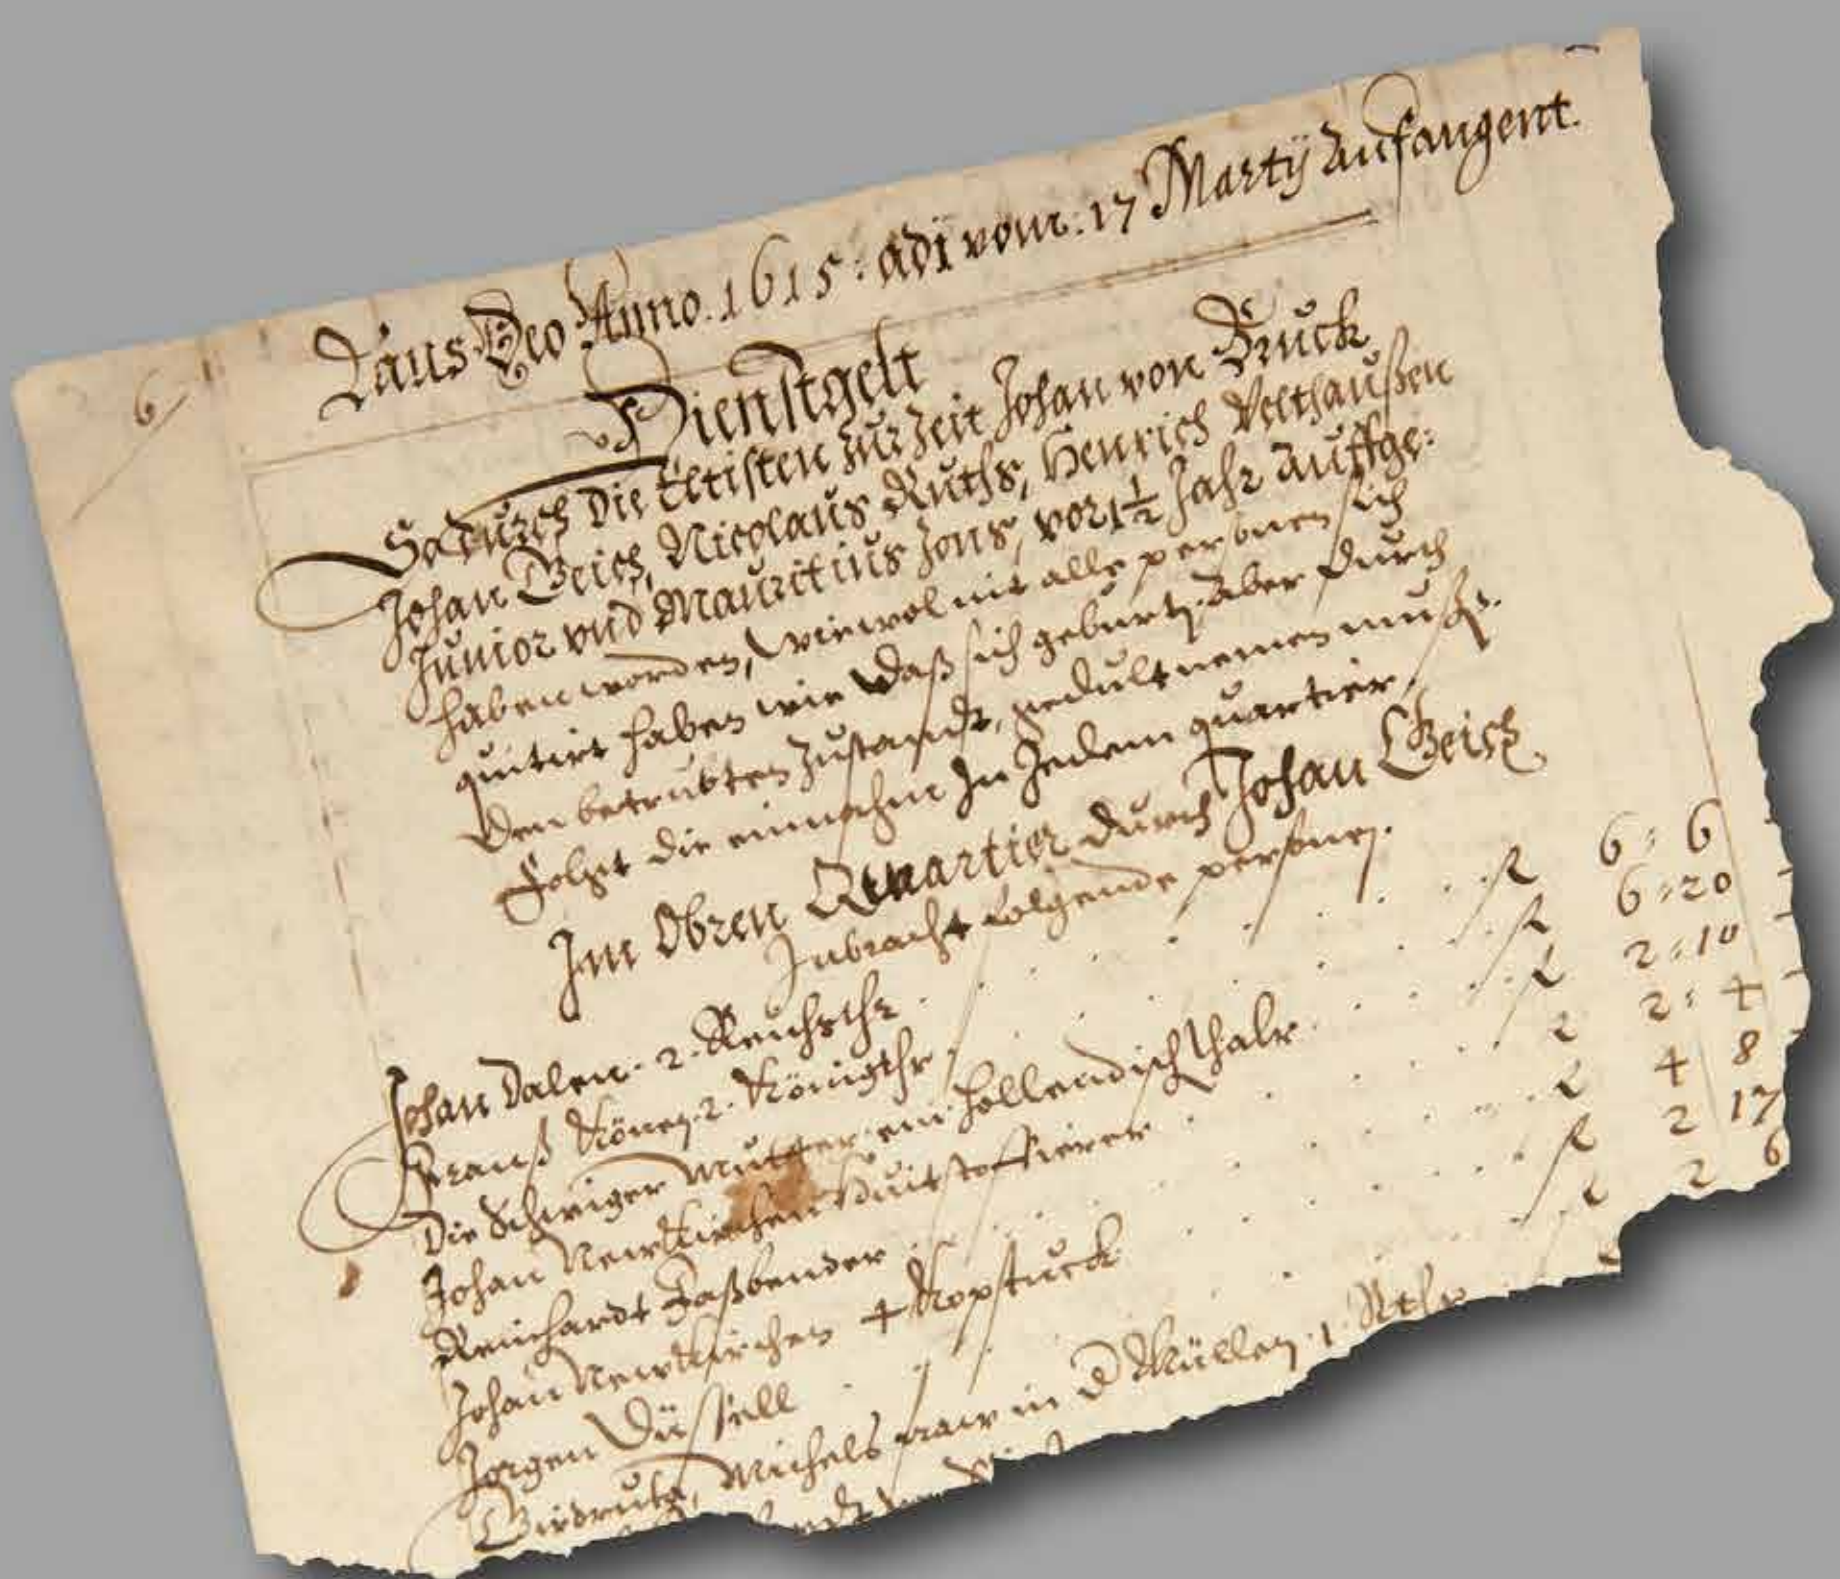 6
Laus Deo Anno. 1615: adi vom: 17 Martÿ Anfangent.
Dienstgelt
So durch die Eltisten zur Zeit Johan von Bruck
Johan Beich, Nicolaus Ruths, Henrich Velthaußen
Junior vnd Mauritius Jons, vor 1½ Jahr auffge:
haben worden, wiewol nit alle personen sich
quitirt haben wie daß sich geburtz. Aber durch
den betrubten zustandt, gedult nemen muß.
Folgt die einnahm In Jedem quartier,
Im Obren Quartier durch Johan Beich
Inbracht folgende personen.
Johan Dalen . 2 . Reichsthr 6 : 6
Franß Könen . 2 . Königthr 6 : 20
Die Schwiger Mutter ein hollendisch thalr 2 : 10
Johan Newkirchen Vuitstoffierer 2 : 4
Reinhardt Faßbender 4 8
Johan Newkirchen 4 Kopstuck 2 17
Jorgen Düssell 2 6
Girdrutz, Michels fraw in d Müllen . 1 . Rthr